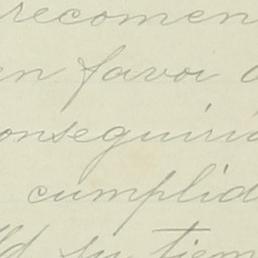 recomen
en favor d
onseguiri
cumplid
Ud su tiem